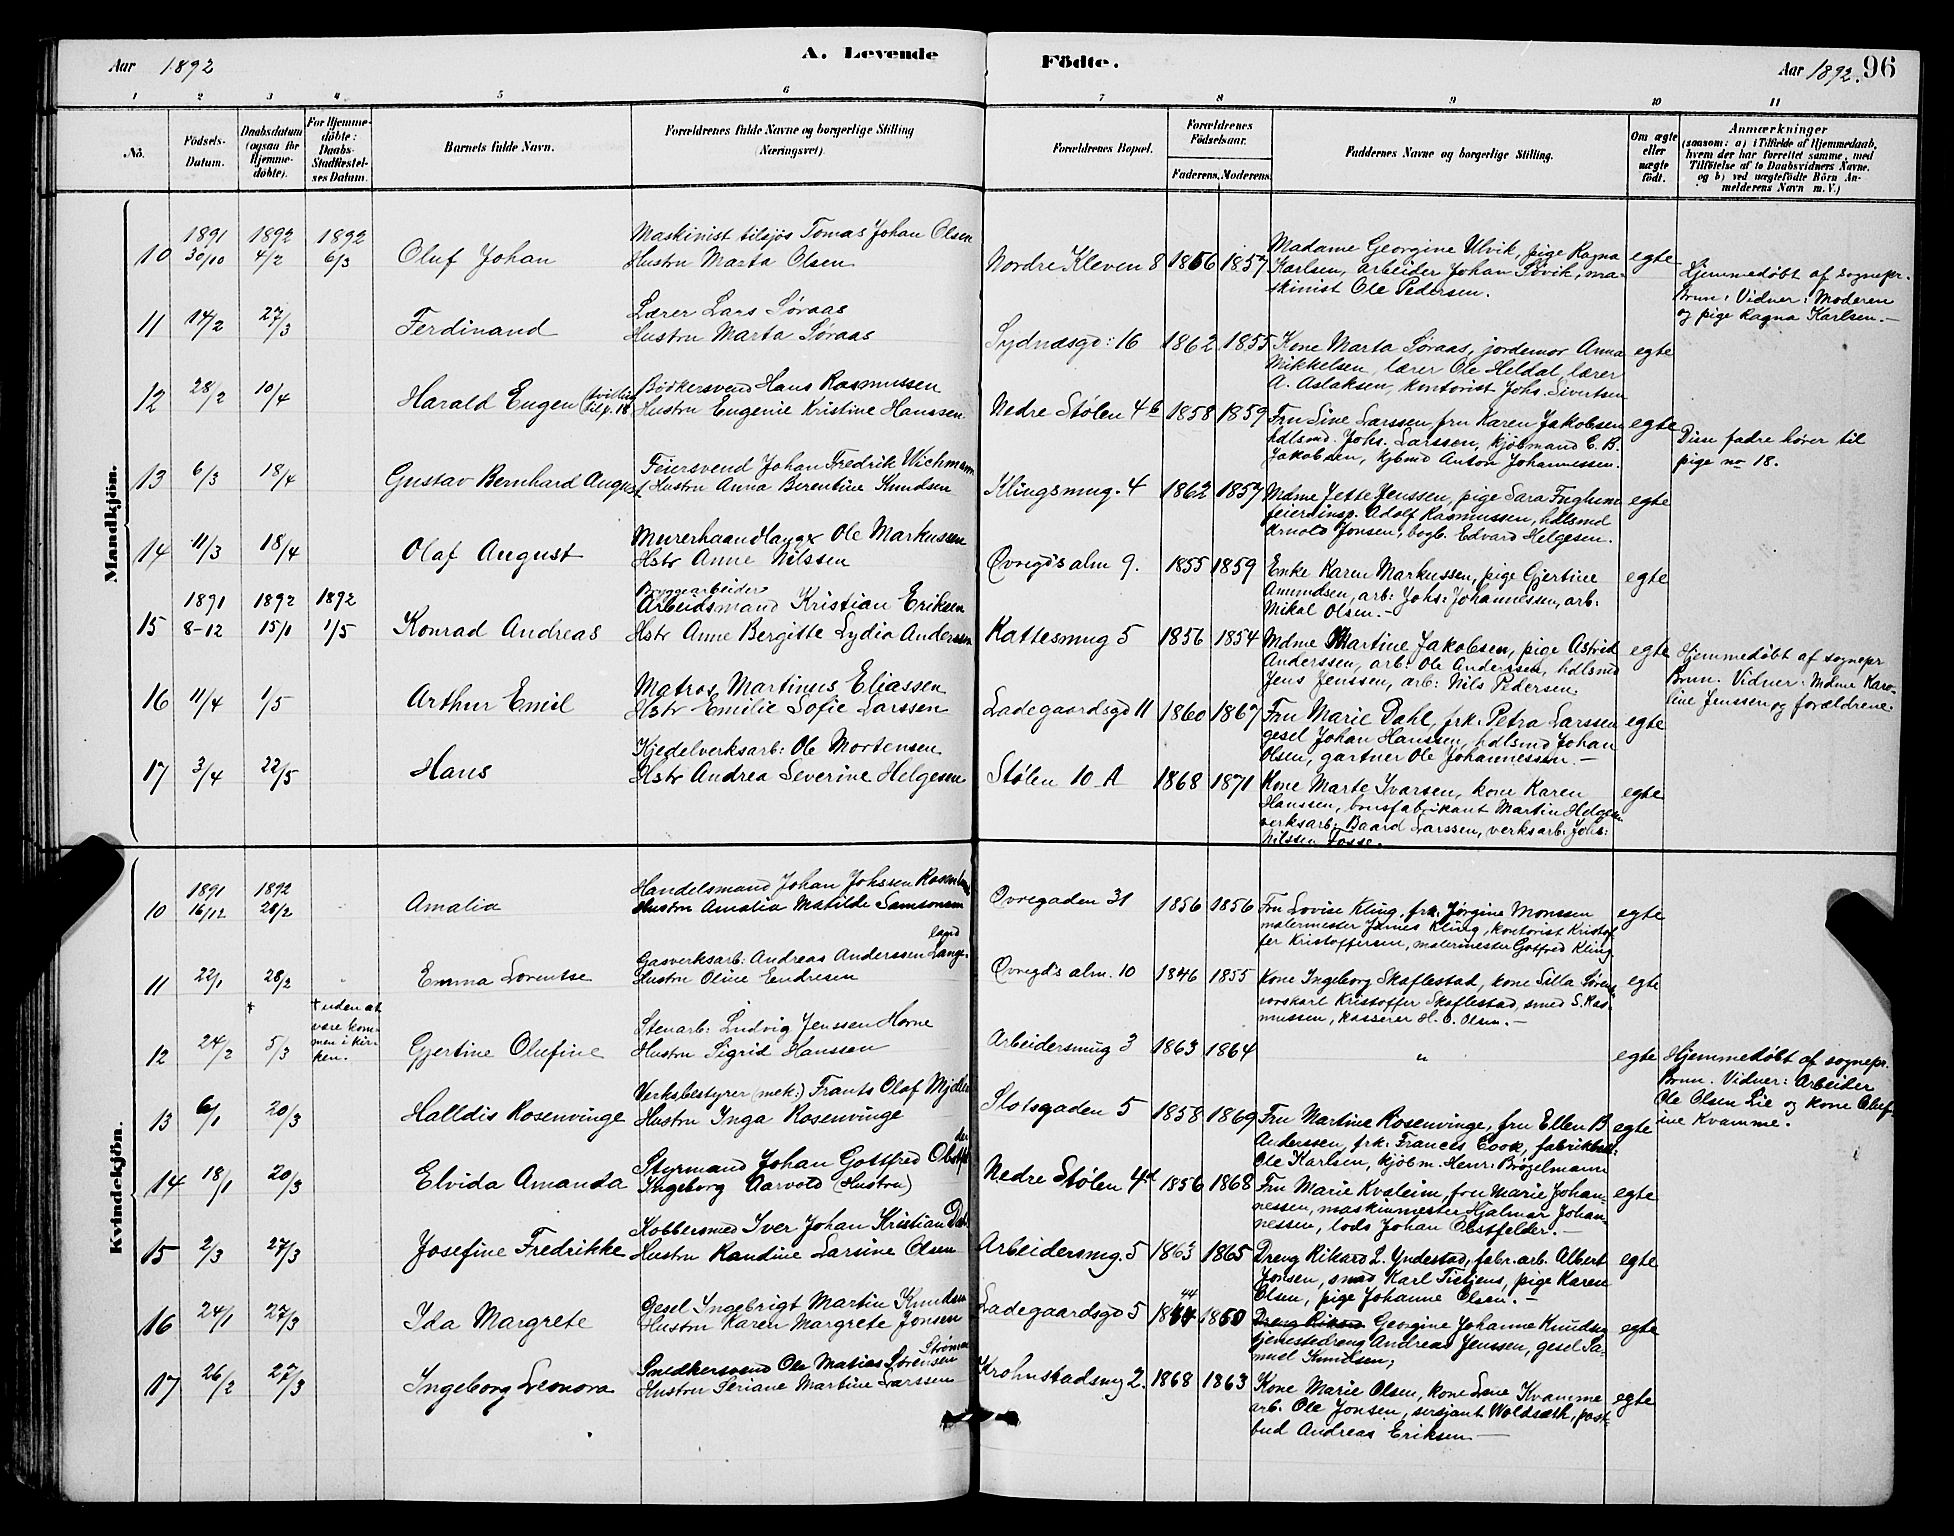 Aar 1892
A. Levende Födte.
Aar 1892. 96
1 2 3 4 5 6 7 8 9 10 11
No.
Födsels-Datum.
Daabsdatum (ogsaa for Hjemme-döbte).
For Hjemme-döbte: Daabs-Stadfæstel-ses Datum.
Barnets fulde Navn.
Forældrenes fulde Navne og borgerlige Stilling (Næringsvei).
Forældrenes Bopæl.
Forældrenes Födselsaar.
Faderens. Moderens.
Faddernes Navne og borgerlige Stilling.
Om ægte eller uægte födt.
Anmærkninger
(saasom: a) i Tilfælde af Hjemmedaab, hvem der har forrettet samme, med Tilföielse af to Daabsvidners Navne. og b) ved uægtefödte Börn An-melderens Navn m. V.)
Mandkjön.
10 1891 30/10 1892 4/2 1892 6/3 Oluf Johan
Maskinist tilsjøs Tomas Johan Olsen
Hustru Marta Olsen
Nordre Kleven 8 1856 1857
Madame Georgine Ulvik, pige Ragna
Karlsen, arbeider Johan Søvik, ma-
skinist Ole Pedersen.
egte
Hjemmedøbt af sognepr.
Brun: Vidner: Moderen
og pige Ragna Karlsen.
11 14/2 27/3 Ferdinand
Lærer Lars Søraas
Hustru Marta Søraas
Sydnæsgd: 16 1862 1855
Kone Marta Søraas, jordemor Anna
Mikkelsen, lærer Ole Heldal, lærer
A. Aslaksen, kontorist Johs. Sivertsen
egte
12 28/2 10/4 Harald Eugen (tvilling til p. 18)
Bødkersvend Hans Rasmussen
Hustru Eugenie Kristine Hanssen
Nedre Stølen 4b 1858 1859
Fru Line Larssen fru Karen Jakobsen
hdlsmd. Johs. Larssen, kjøbmand E. B.
Jakobsen, kjbmd Anton Johannessen.
egte
Disse fadre hører til
pige no 18.
13 6/3 18/4 Gustav Bernhard August
Feiersvend Johan Fredrik Wichmann
Hustru Anna Berentine Knudsen
Klingsmug. 4 1862 1857
Mdme Jette Jenssen, pige Sara
feierinsp. Adolf Rasmussen, hdlsmd
Arnold Jonsen, bogb. Edvard Helgesen.
egte
14 11/3 18/4 Olaf August
Murerhaandlanger Ole Markussen
Hstr Anne Nilssen
Øvregd's alm 9. 1855 1859
Enke Karen Markussen, pige Gjertine
Amundsen, arb: Johs: Johannessen, arb:
Mikal Olsen.
egte
15 1891 8-12 1892 15/1 1892 1/5 Konrad Andreas
Bryggearbeider
Arbeidsmand Kristian Eriksen
Hstr Anne Bergitte Lydia Anderssen
Kattesmug 5 1856 1854
Mdme Martine Jakobsen, pige Astrid
Anderssen, arb: Ole Anderssen, hdlsmd
Jens Jenssen, arb: Nils Pedersen
egte
Hjemmedøbt af sognepr
Brun. Vidner: Mdme Karo-
line Jenssen og forældrene.
16 11/4 1/5 Arthur Emil
Matros Martinus Eliassen
Hstr Emilie Sofie Larssen
Ladegaardsgd 11 1860 1867
Fru Marie Dahl, frk: Petra Larssen
gesel Johan Hanssen, hdlsmd Johan
Olsen, gartner Ole Johannessen.
egte
17 3/4 22/5 Hans
Kjedelverksarb: Ole Mortensen
Hstr Andrea Severine Helgesen
Stølen 10 A 1868 1871
Kone Marte Ivarsen, kone Karen
Hanssen, brusfabrikant Martin Helgesen
verksarb: Baard Larssen, verksarb: Johs:
Nilssen Fosse.
egte
Kvindekjön.
10 1891 16/12 1892 28/2 Amalia
Handelsmand Johan Johssen
Hustru Amalia Matilde Samsonsen
Øvregaden 31 1856 1856
Fru Lovise Kling, frk: Jørgine Monssen
malermester James Kling, kontorist Kristof
fer Kristoffersen, malermester Gotfred Kling
egte
11 22/1 28/2 Emma Lorentse
Gasverksarb: Andreas Anderssen Lange-
land
Hustru Oline Endresen
Øvregd's alm. 10 1846 1855
Kone Ingeborg Skaflestad, kone Silla Søren
vorskarl Kristoffer Skaflestad, smed S. Ras-
mussen, kasserer H. O. Olsen.
egte
12 24/2 † 5/3
† uden at
være kom-
men i kir-
ken.
Gjertine Olufine
Stenarb: Ludvig Jenssen Horne
Hustru Sigrid Hanssen
Arbeidersmug 3 1863 1864
"
egte
Hjemmedøbt af sognepr.
Brun. Vidner: Arbeider
Ole Olsen Lie og kone Oluf-
ine Kvamme.
13 6/1 20/3 Halldis Rosenvinge
Verksbestyrer (mek:) Frants Olaf
Hustru Inga Rosenvinge
Slotsgaden 5 1858 1869
Fru Martine Rosenvinge, fru Ellen B
Anderssen, frk: Frances Cook, fabrikbest:
Ole Karlsen, kjøbm. Henr: Brøgelmann
egte
14 18/1 20/3 Elvida Amanda
Styrmand Johan Gottfred Obstfel
der
Ingeborg Aarvold (Hustru)
Nedre Stølen 4d 1856 1868
Fru Marie Kvaleim, fru Marie Johan-
nessen, maskinmester Hjalmar Johan-
nessen, lods Johan Obstfelder.
egte
15 2/3 27/3 Josefine Fredrikke
Kobbersmed Iver Johan Kristian Dahl
Hustru Randine Larsine Olsen
Arbeidersmg. 5 1863 1865
Dreng Rikard L. Yndestad, fabr. arb. Albert
Jonsen, smed Karl Tietjens, pige Karen
Olsen, pige Johanne Olsen.
egte
16 24/1 27/3 Ida Margrete
Gesel Ingebrigt Martin Knudsen
Hustru Karen Margrete Jonsen
Ladegaardsgd 5 1844 44 1850
Dreng Rikard Georgine Johanne Knudsen
tjenestedreng Andreas Jenssen, gesel Sa-
muel Knudsen,
egte
17 26/2 27/3 Ingeborg Leonora
Strømme
Snedkersvend Ole Matias Sørensen
Hustru Seriane Martine Larssen
Krohnstadsmg 2. 1868 1863
Kone Marie Olsen, kone Lene Kvamme
arb. Ole Jonsen, sersjant Woldsæth, post-
bud Andreas Eriksen
egte